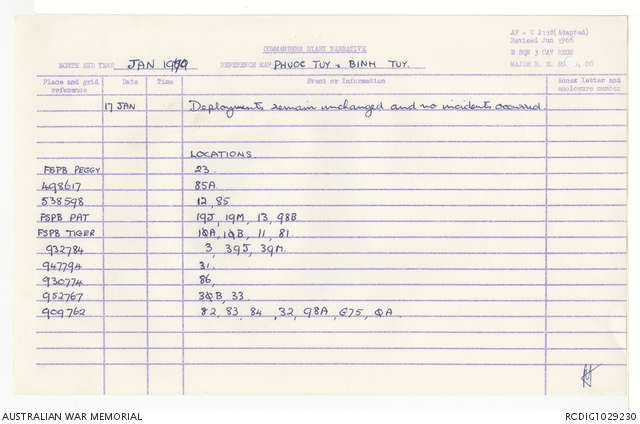 AF - C A119B(Adapted)
Revised Jun 1968
COMMANDERS DIARY NARRATIVE
B SQN 3 CAV REGT
MONTH AND YEAR JAN 1970 REFERENCE MAP PHUOC TUY & BINH TUY.
MAJOR R. M. OC
Place and grid reference Date Time Event or Information Annex letter and enclosure number
17 JAN Deployments remain unchanged and no incidents occurred.
LOCATIONS.
FSPB PEGGY 23.
498617 85A
538598 12, 85
FSPB PAT 19J, 19M, 13, 98B
FSPB TIGER 1ØA, 1ØB, 11, 81.
932784 3, 39J, 39M.
947794 31.
930774 86,
952767 3ØB, 33.
909762 82, 83, 84, 32, 98A, G75, ØA.
AUSTRALIAN WAR MEMORIAL RCDIG1029230